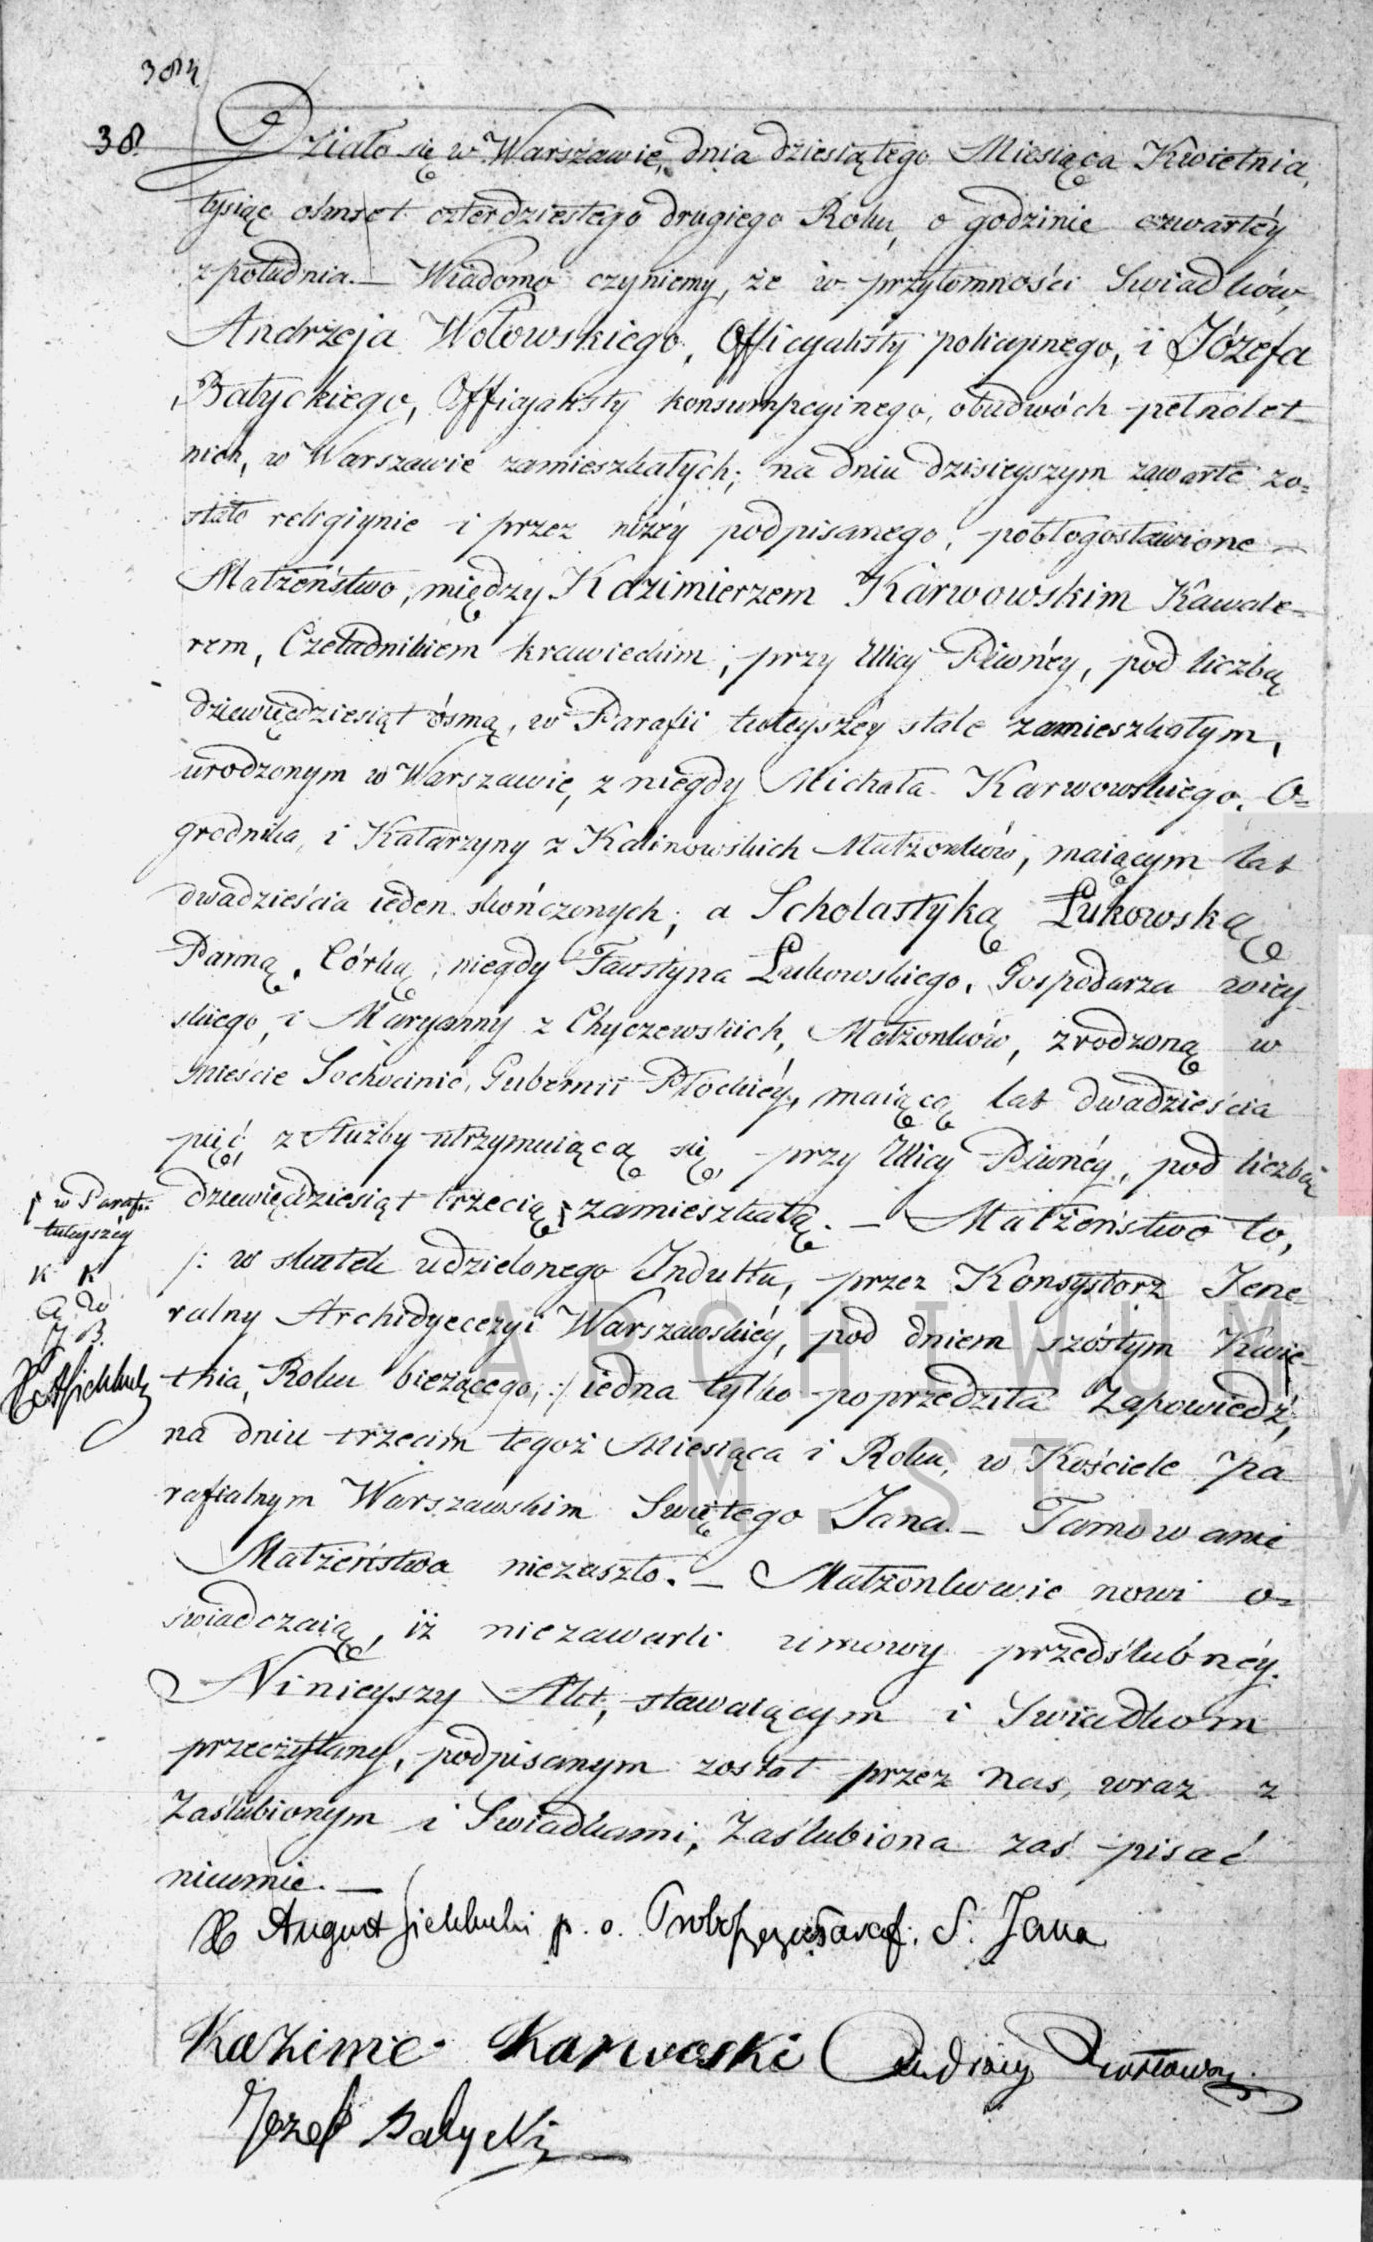 384
38. Działo się w Warszawie, dnia dziesiątego Miesiąca Kwietnia,
tysiąc ośmset czterdziestego drugiego Roku, o godzinie czwartéy
z południa. — Wiadomo czyniemy, że w przytomności Swiadków,
Andrzeja Wołowskiego, Officyalisty policyinego, i Józefa
Bałyckiego, Officyalisty konsumpcyinego, obudwóch pełnolet
nich, w Warszawie zamieszkałych; na dniu dzisieyszym zawarte zo=
stało religiynie i przez niżéy podpisanego, pobłogosławione —
Małżeństwo, między Kazimierzem Karwowskim Kawale=
rem, Czeladnikiem krawieckim, przy Ulicy Piwnéy, pod liczbą
dziewięćdziesiąt ósmą, w Parafii tuteyszéy stale zamieszkałym,
urodzonym w Warszawie, z niegdy Michała Karwowskiego, O=
grodnika, i Katarzyny z Kalinowskich Małżonków, maiącym lat
dwadzieścia ieden skończonych; a Scholastyką Łukowską
Panną, Córką niegdy Faustyna Łukowskiego, Gospodarza wiey
skiego, i Maryanny z Chyczewskich, Małżonków, zrodzoną w
mieście Sochocinie, Gubernii Płockiéy, maiącą lat dwadzieścia
pięć, z służby utrzymuiącą się, przy Ulicy Piwnéy, pod liczbą
dziewięćdziesiąt trzecią zamieszkałą. — Małżeństwo to,
w Parafii
tuteyszéy
K K
A. W
J. B.
/: w skutek udzielonego Indultu, przez Konsystorz Jene=
ralny Archidyecezyi Warszawskiéy, pod dniem szóstym Kwie=
tnia, Roku bieżącego, :/ iedna tylko poprzedziła Zapowiedź,
na dniu trzecim tegoż Miesiąca i Roku, w Kościele Pa
rafialnym Warszawskim Swiętego Jana. — Tamowanie
Małżeństwa niezaszło. — Małżonkowie nowi o=
świadczaią, iż niezawarli umowy przedślubnéy.
Ninieyszy Akt, stawaiącym i Swiadkom
przeczytany, podpisanym został przez nas, wraz z
Zaślubionym i Swiadkami, Zaślubiona zaś pisać
nieumie. —
X August p. o. Paraf. S. Jana
Kazimie. Karwoski
Jozef Bałycki
ARCHIWUM
M. ST. W